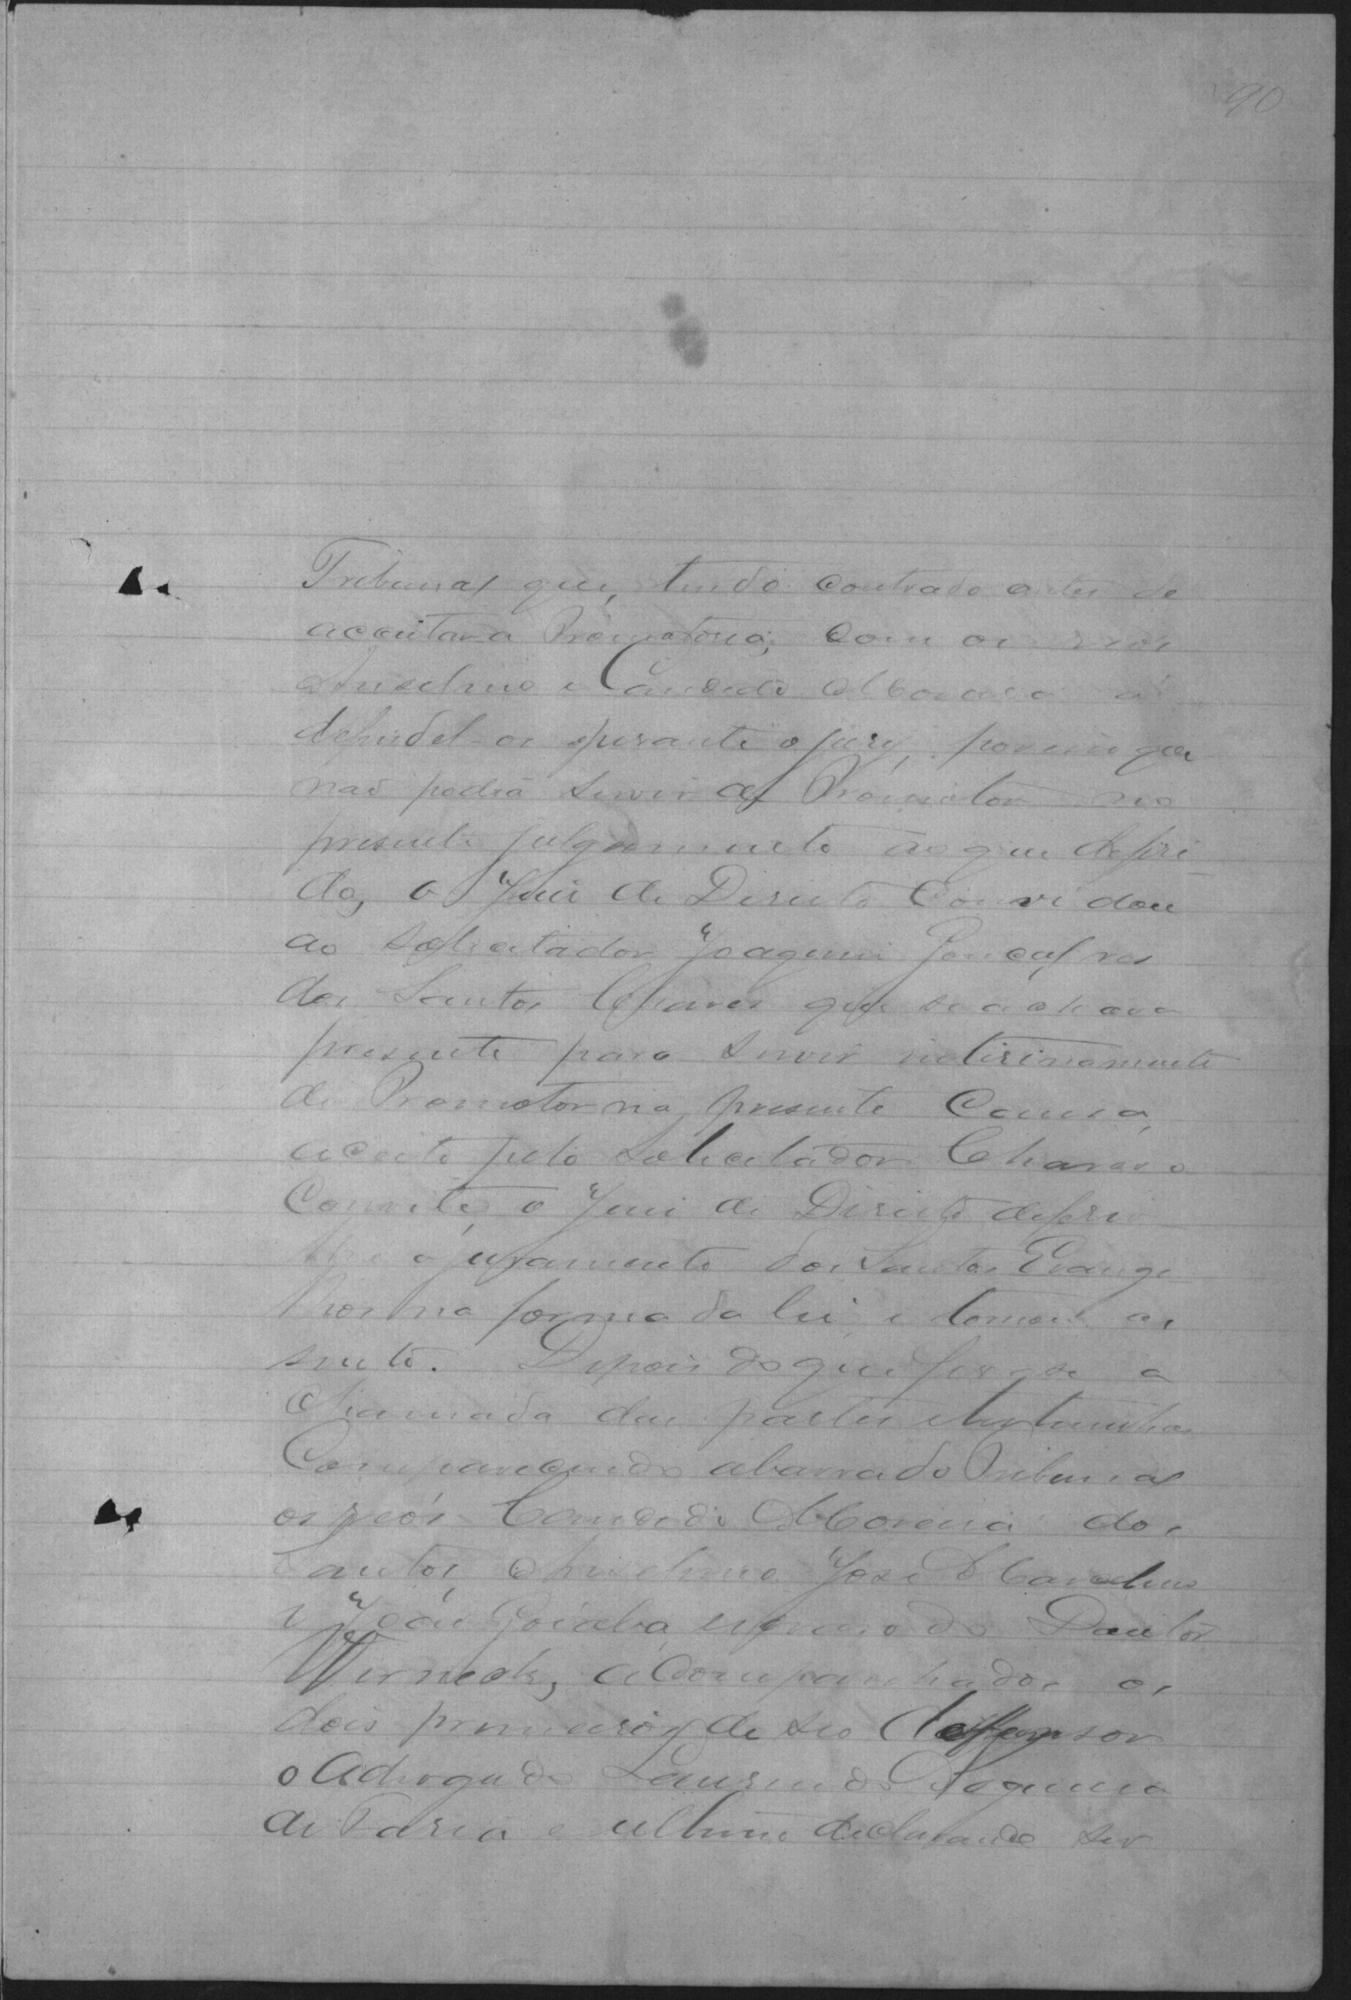 90
Tribunal que, tendo contrado antes de
acceitar a Promotoria, com os reos
Anselmo e Candido Moreira a
defendel-os perante o jury, por isso que
não podia servir de Promotor no
presente julgamento ao que deferi
do, o Juiz de Direito convidou
ao solicitador Joaquim Gonçalves
dos Santos Chaves que se achava
presente para servir interinamente
de Promotor na presente causa,
aceito pelo solicitador Chaves o
Convite, o Juiz de Direito deferio
lhe o juramento dos Santos Evange
lhos na forma da lei, e tomou as
sento. Depois do que fes-se a
chamada das partes e testemunhas
Comparecendo a barra do Tribunal
os reós Candido Moreira dos
Santos, Anselmo José
e João Goiaba, escravo do Doutor
Werneck, acompanhados os
dois primeiros de seo deffensor
o Advogado Laurindo
de Faria e ultimo declarando ser